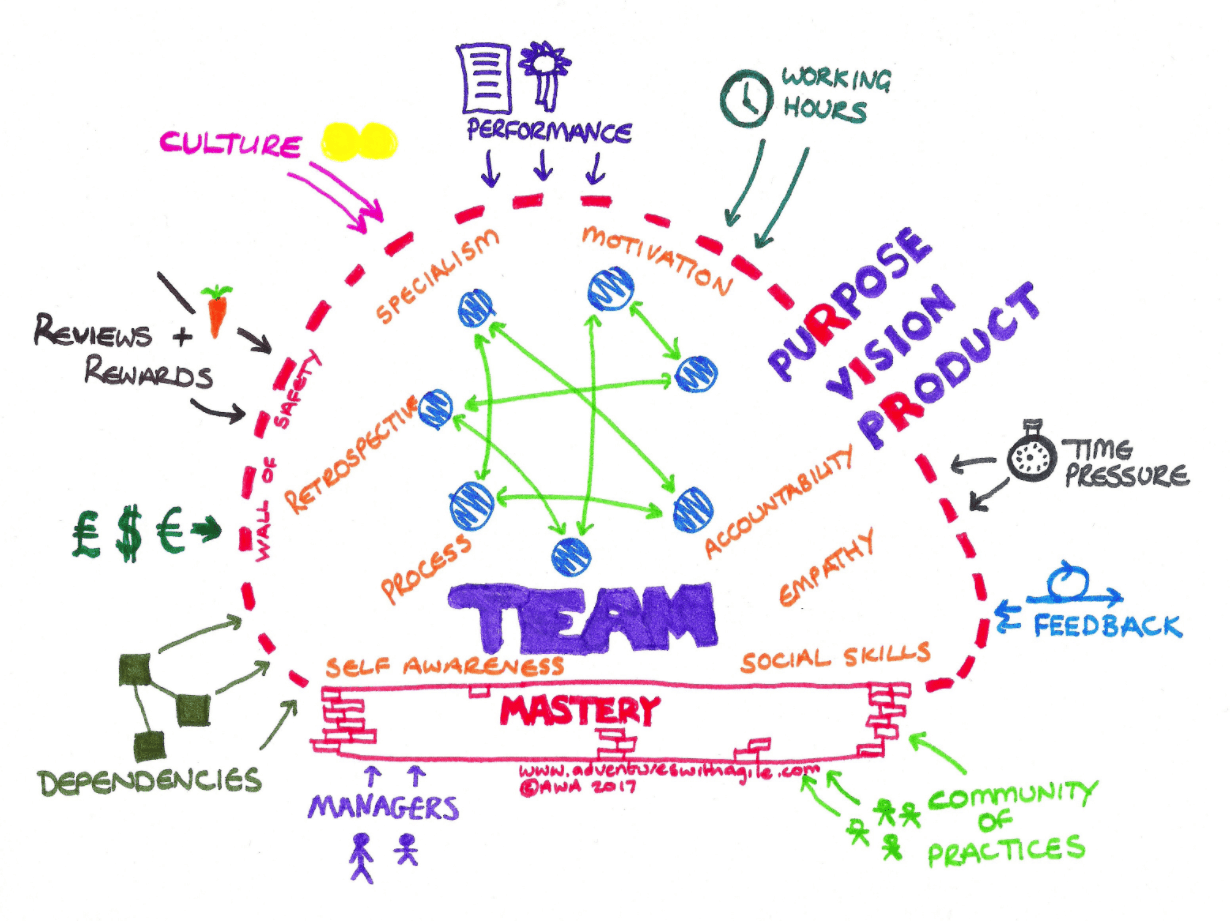 PERFORMANCE
WORKING
HOURS
CULTURE
SPECIALISM
MOTIVATION
PURPOSE
VISION
PRODUCT
REVIEWS +
REWARDS
WALL OF SAFETY
RETROSPECTIVE
ACCOUNTABILITY
TIME
PRESSURE
£ $ €
PROCESS
EMPATHY
TEAM
FEEDBACK
SELF AWARENESS
SOCIAL SKILLS
MASTERY
DEPENDENCIES
www.adventureswithagile.com
©AWA 2017
MANAGERS
COMMUNITY
OF
PRACTICES